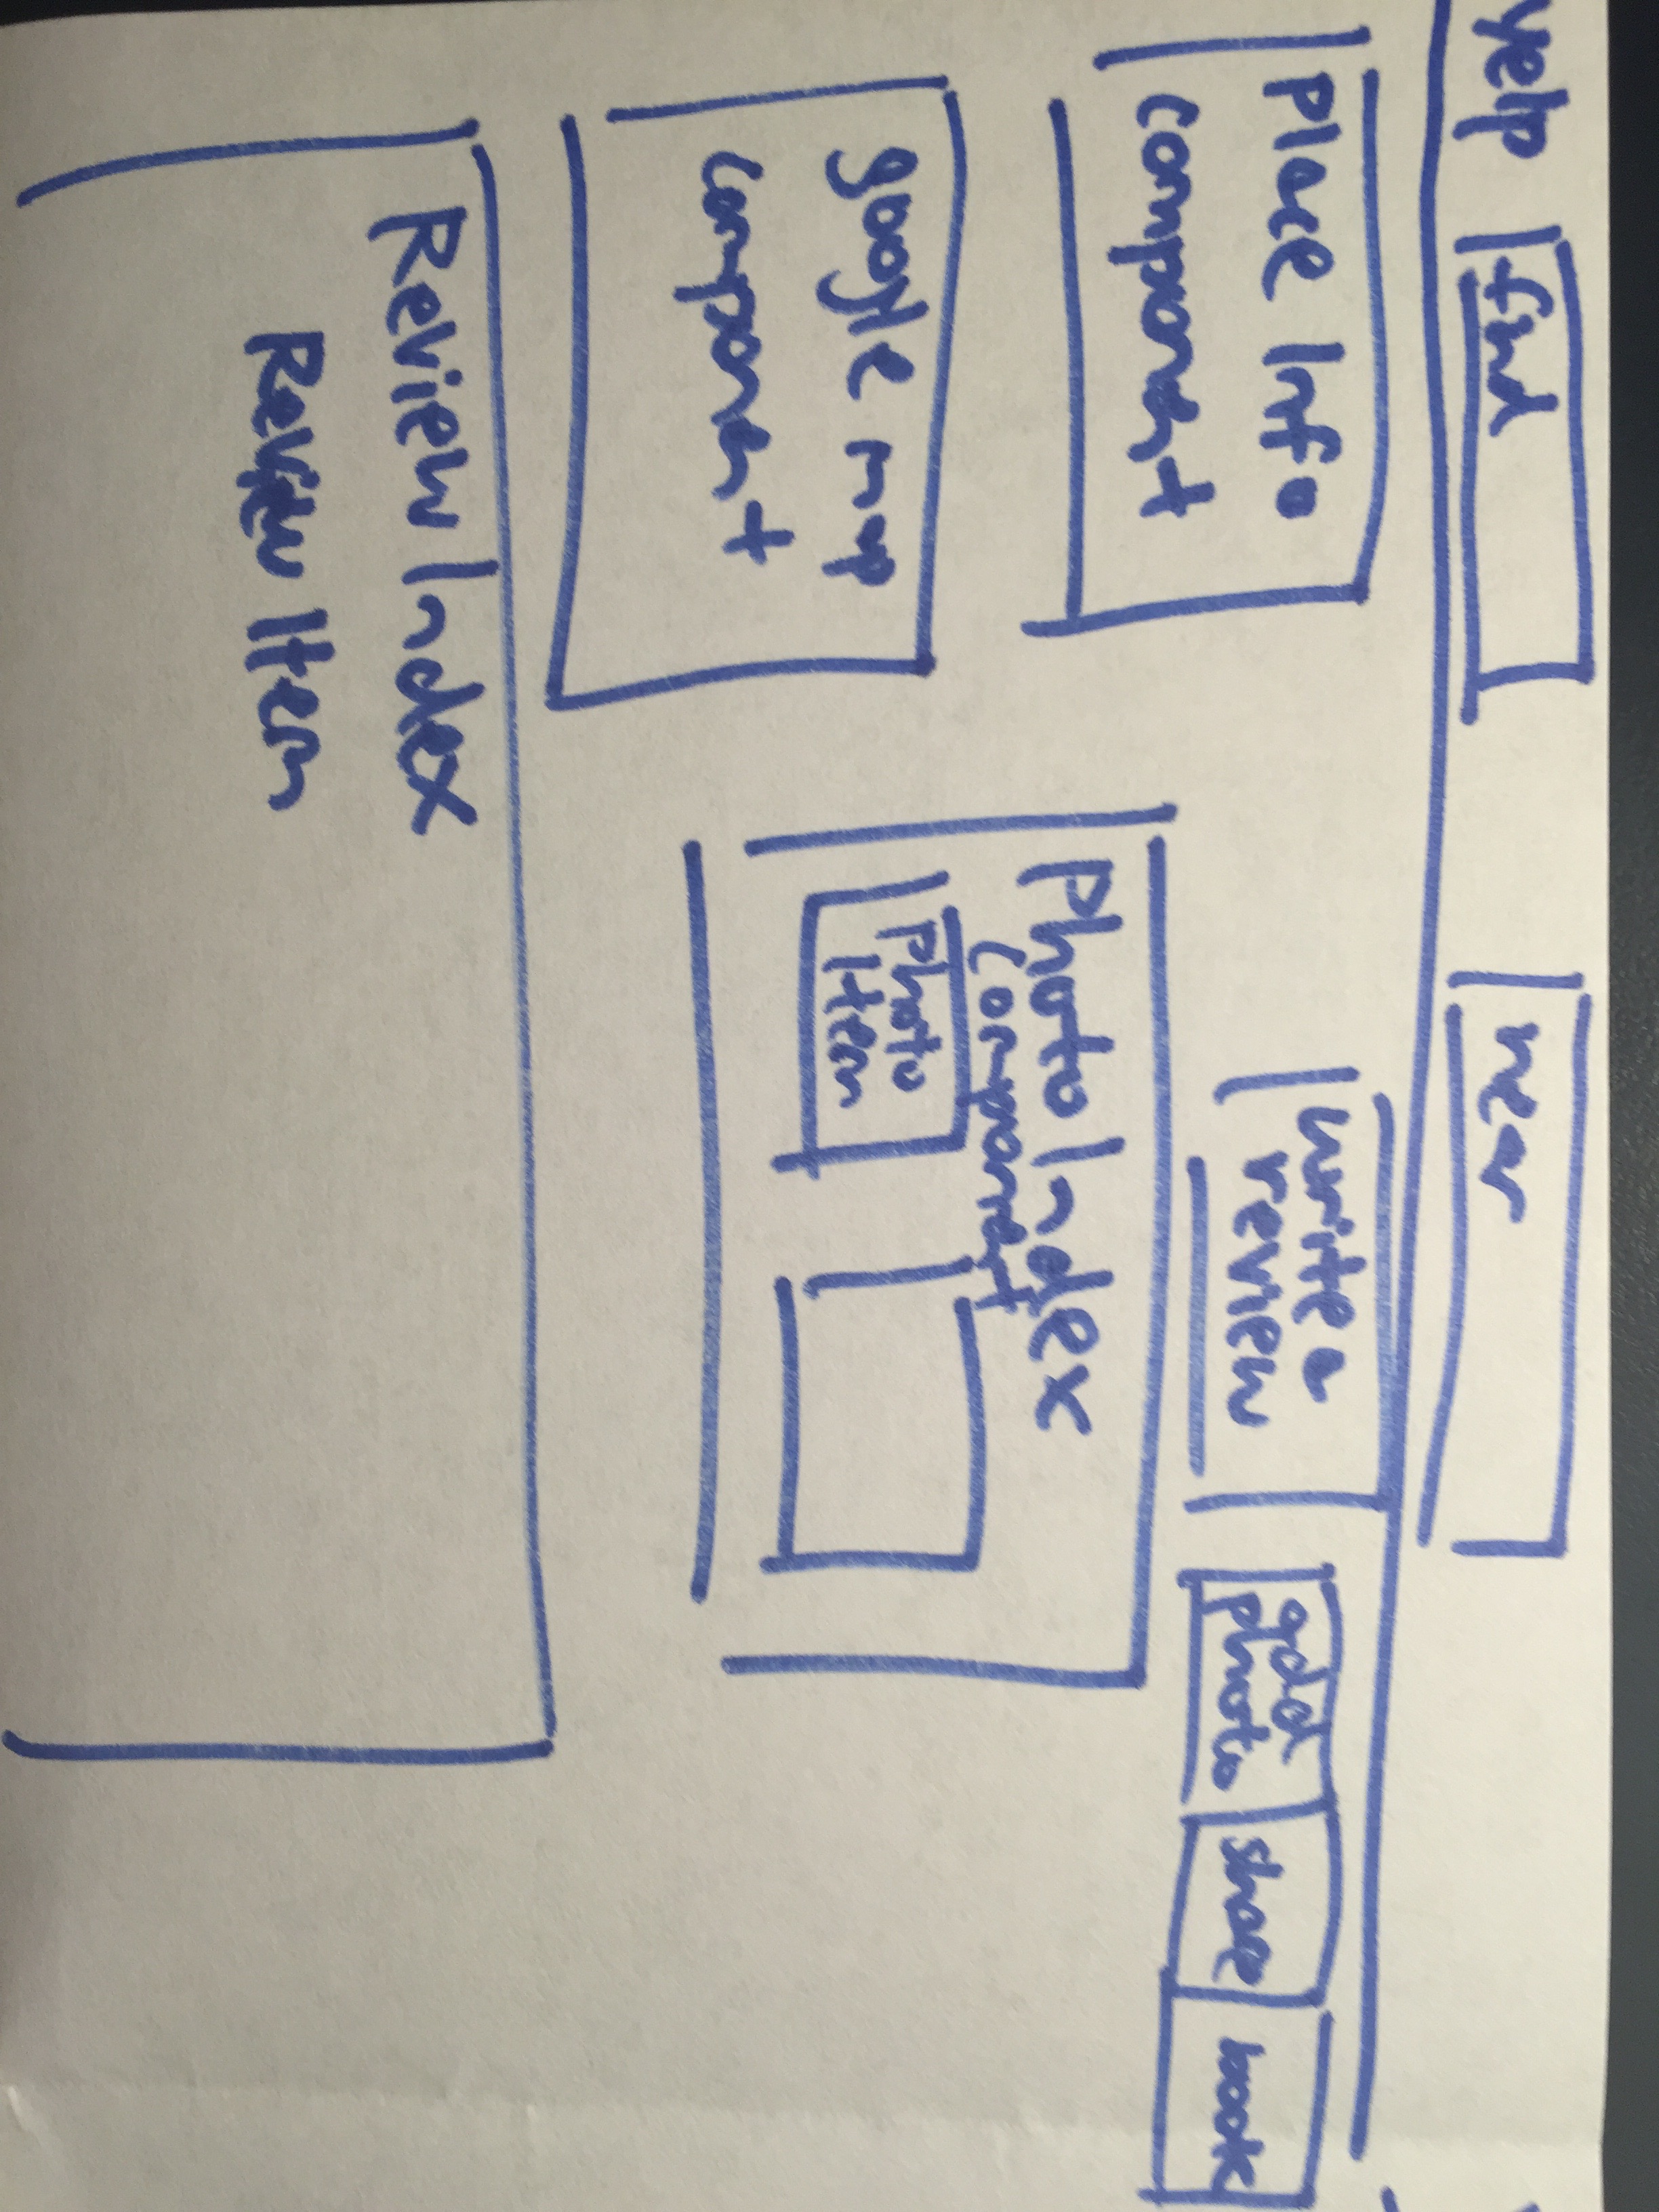 yelp find near
Place Info
component
write a
review
add
photo
share
book
google map
component
Photo Index
component
Photo
Item
Review Index
Review Item